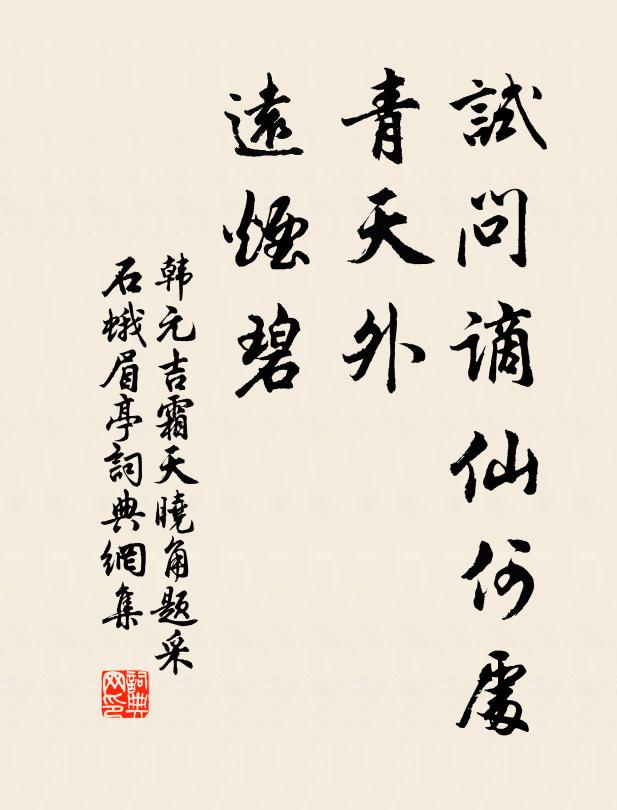 試問謫仙何處
青天外
遠煙碧
韩元吉霜天曉角题采
石蛾眉亭詞典網集
詞典
网印